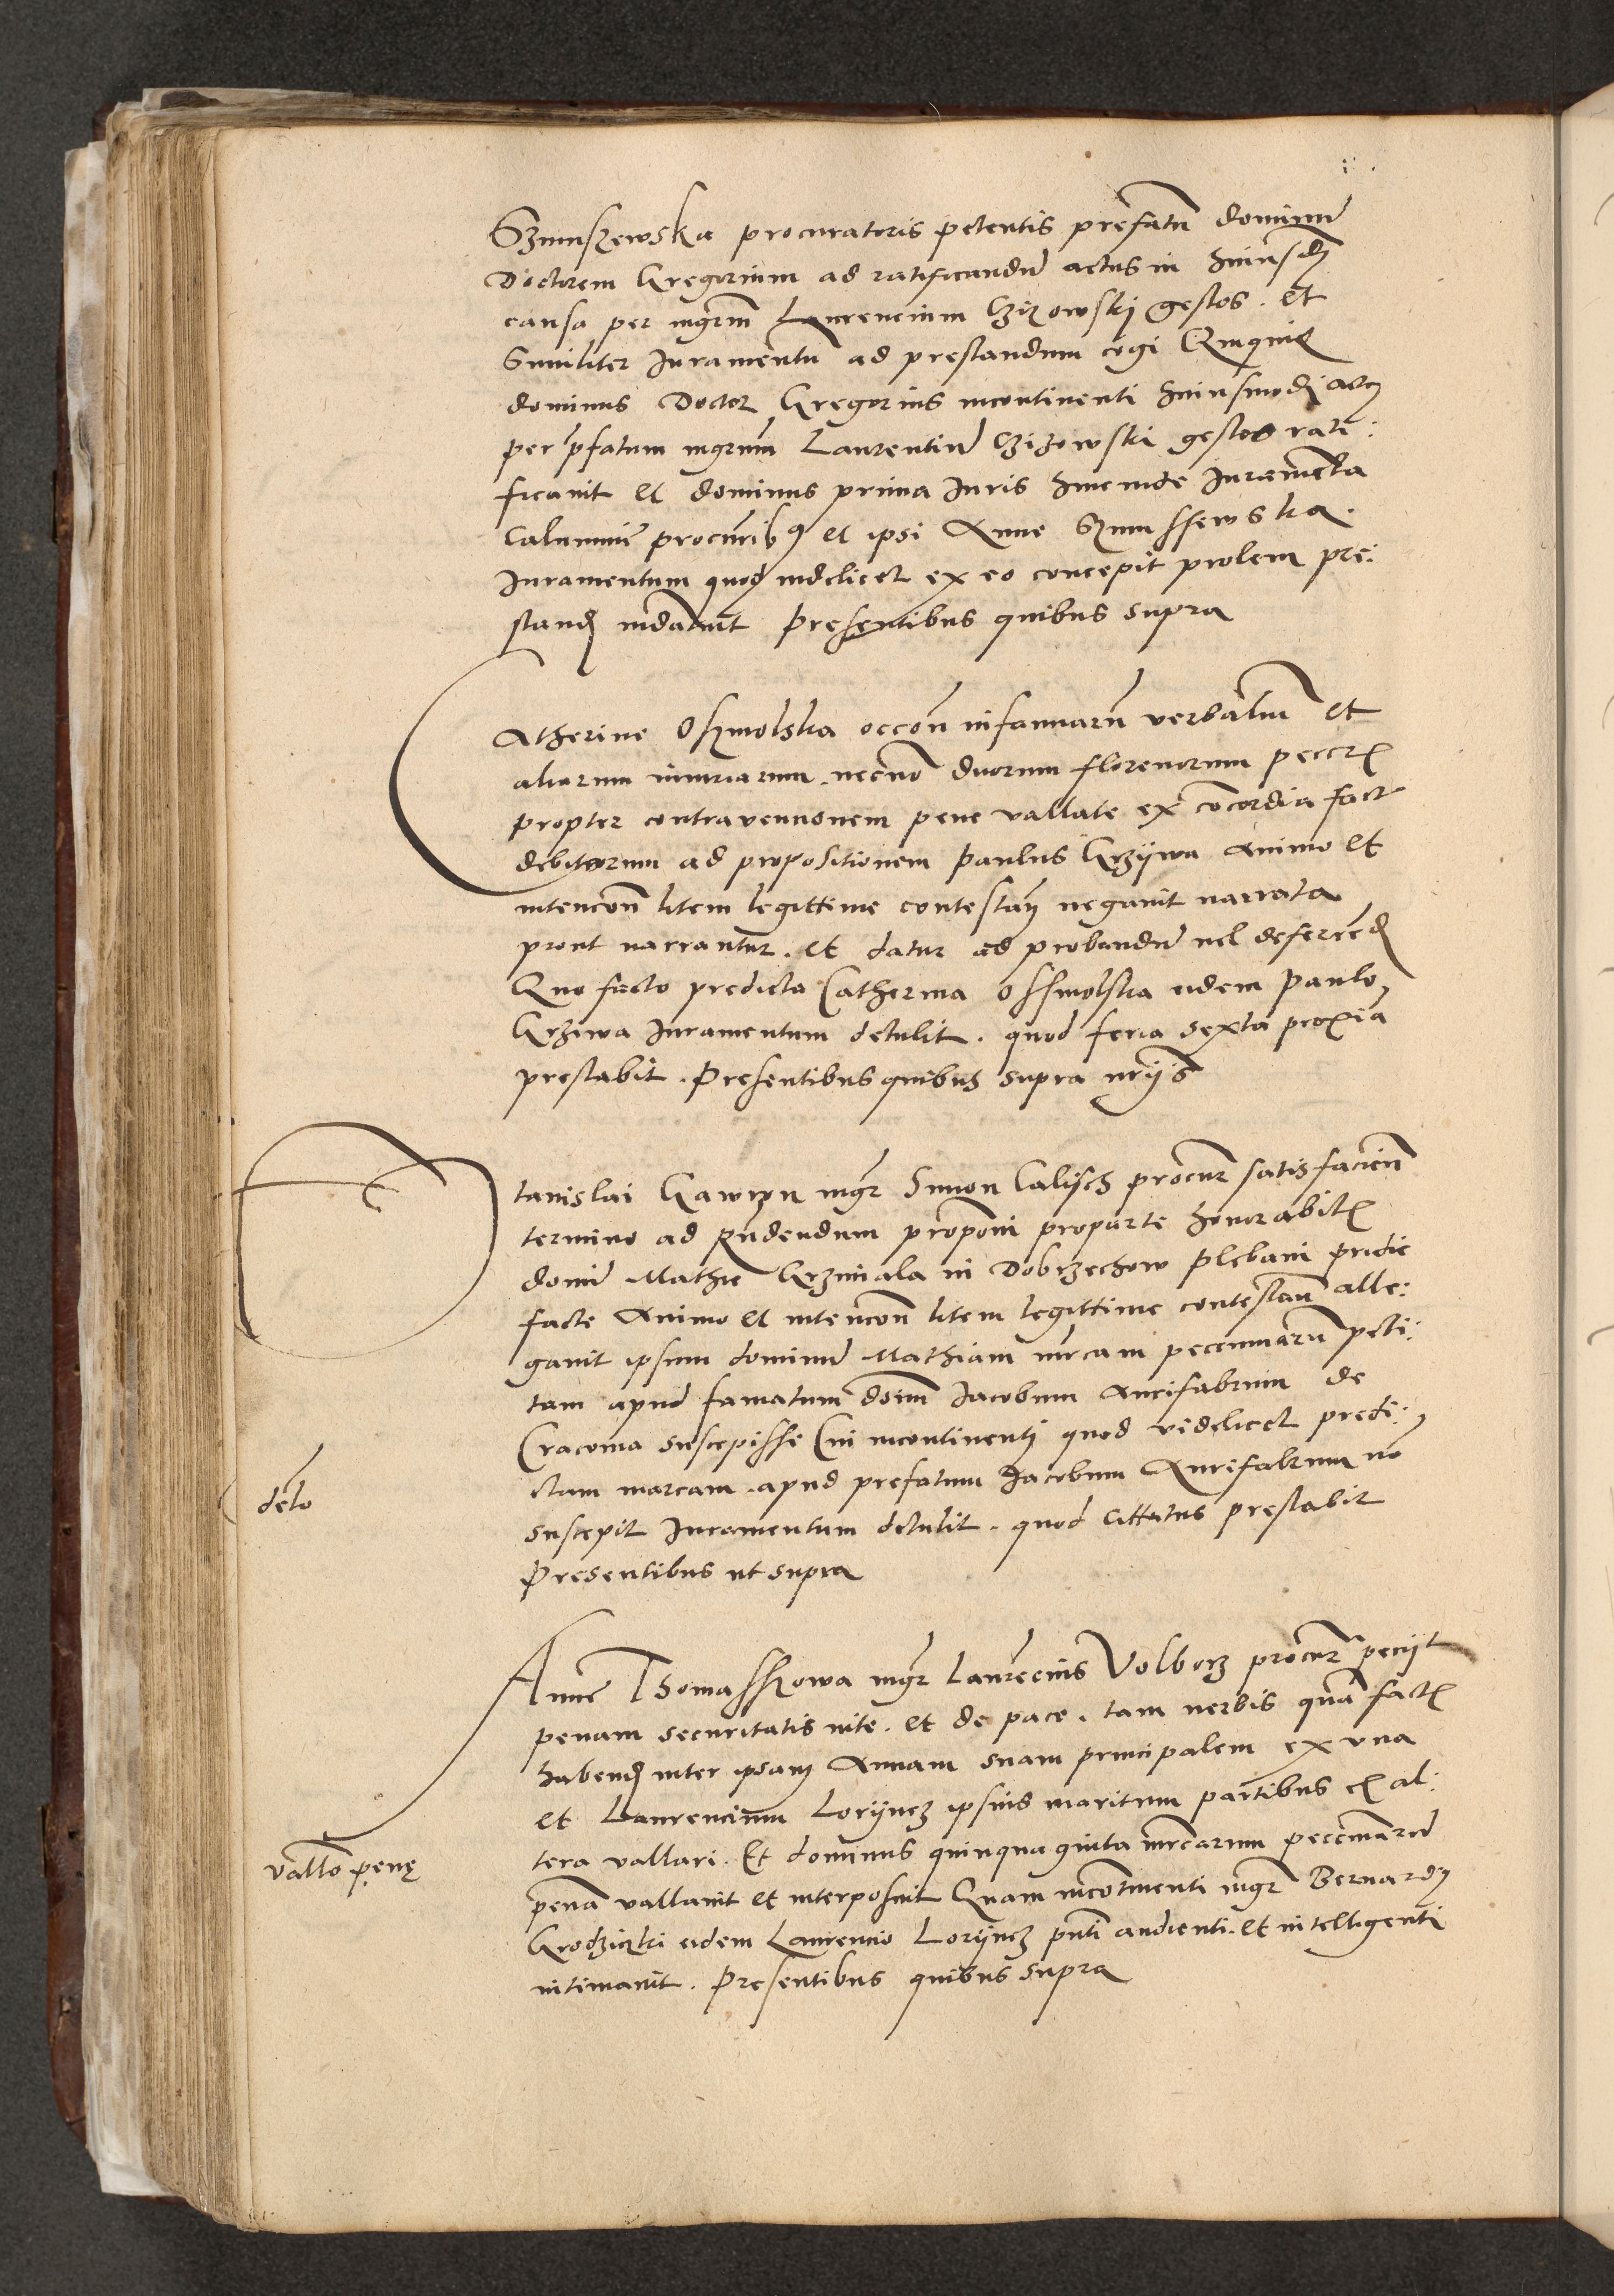 Szumszewska procuratoris petentis prefatū dominū
Doctorem Gregorium ad ratificandū actus in huiusmōi
causa per mgrm Laurencium Czizowskj gestos. Et
Similiter Juramentū ad prestandum cogi Quiquid
dominus Doctor Gregorius incontinenti huiusmodi actꝰ
per p̄fatum mgrum Laurentiū Czizowski gestos rati:
ficauit et dominus prima Juris hincinde Juramēta
Calumnie procurībꝰ et ipsi Anne Szumssewska.
Juramentum quod videlicet ex eo concepit prolem pre:
stand mdauit Presentibus quibus supra
Catherine Oszmolska occōn infamiarū verbaliū Et
aliarum iniuriarum. necnō duorum florenorum peccrꝭ
propter contravencionem pene vallate ex cōcordia fact
debitorum ad propositionem Paulus Grzÿwa Animo et
intencōn litem legittime contestan negauit narrata
prout narrantur. et datur ad probandū vel deferēd
Quo facto predicta Catherina Ossmolska eidem Paulo
Grziwa Juramentum detulit. quod feria sexta proxīa
prestabit. Presentibus quibus supra
Stanislai Gawron mgr Simon Calisch procur̄ satisfacieñ
termino ad rñdendum proponi proparte honorabilꝭ
domī Mathie Grzmiala in Dobrzechow Plebani pridie
facte Animo et intencōn litem legittime contestan alle:
gauit ipsum dominū Mathiam mrcam pecuniarū peti:
tam apud famatum dom̄ Jacobum Aurifabrum de
Cracouia suscepisse Cui incontinenti quod videlicet predi:
ctam marcam. apud prefatum Jacobum Aurifabrum nō
suscepit Juramentum detulit. quod Cittatus prestabit
Presentibus ut supra
delo
Anne Thomasskowa mgr Laurēcius Volborz procur̄ peciit
penam securitatis vite. et de pace. tam verbis quā factꝭ
habend inter ipsam Annam suam principalem ex vna
et Laurencium Lorÿncz ipsius maritum partibus ex al:
tera vallari. Et dominus quinquaginta mrcarum pecuniarū
vallo penę
penā vallauit et interposuit Quam incōtinenti mgr Bernardꝰ
Grodziczki eidem Laurencio Lorÿncz pn̄ti audienti. et intelligenti
intimauit. Presentibus quibus supra